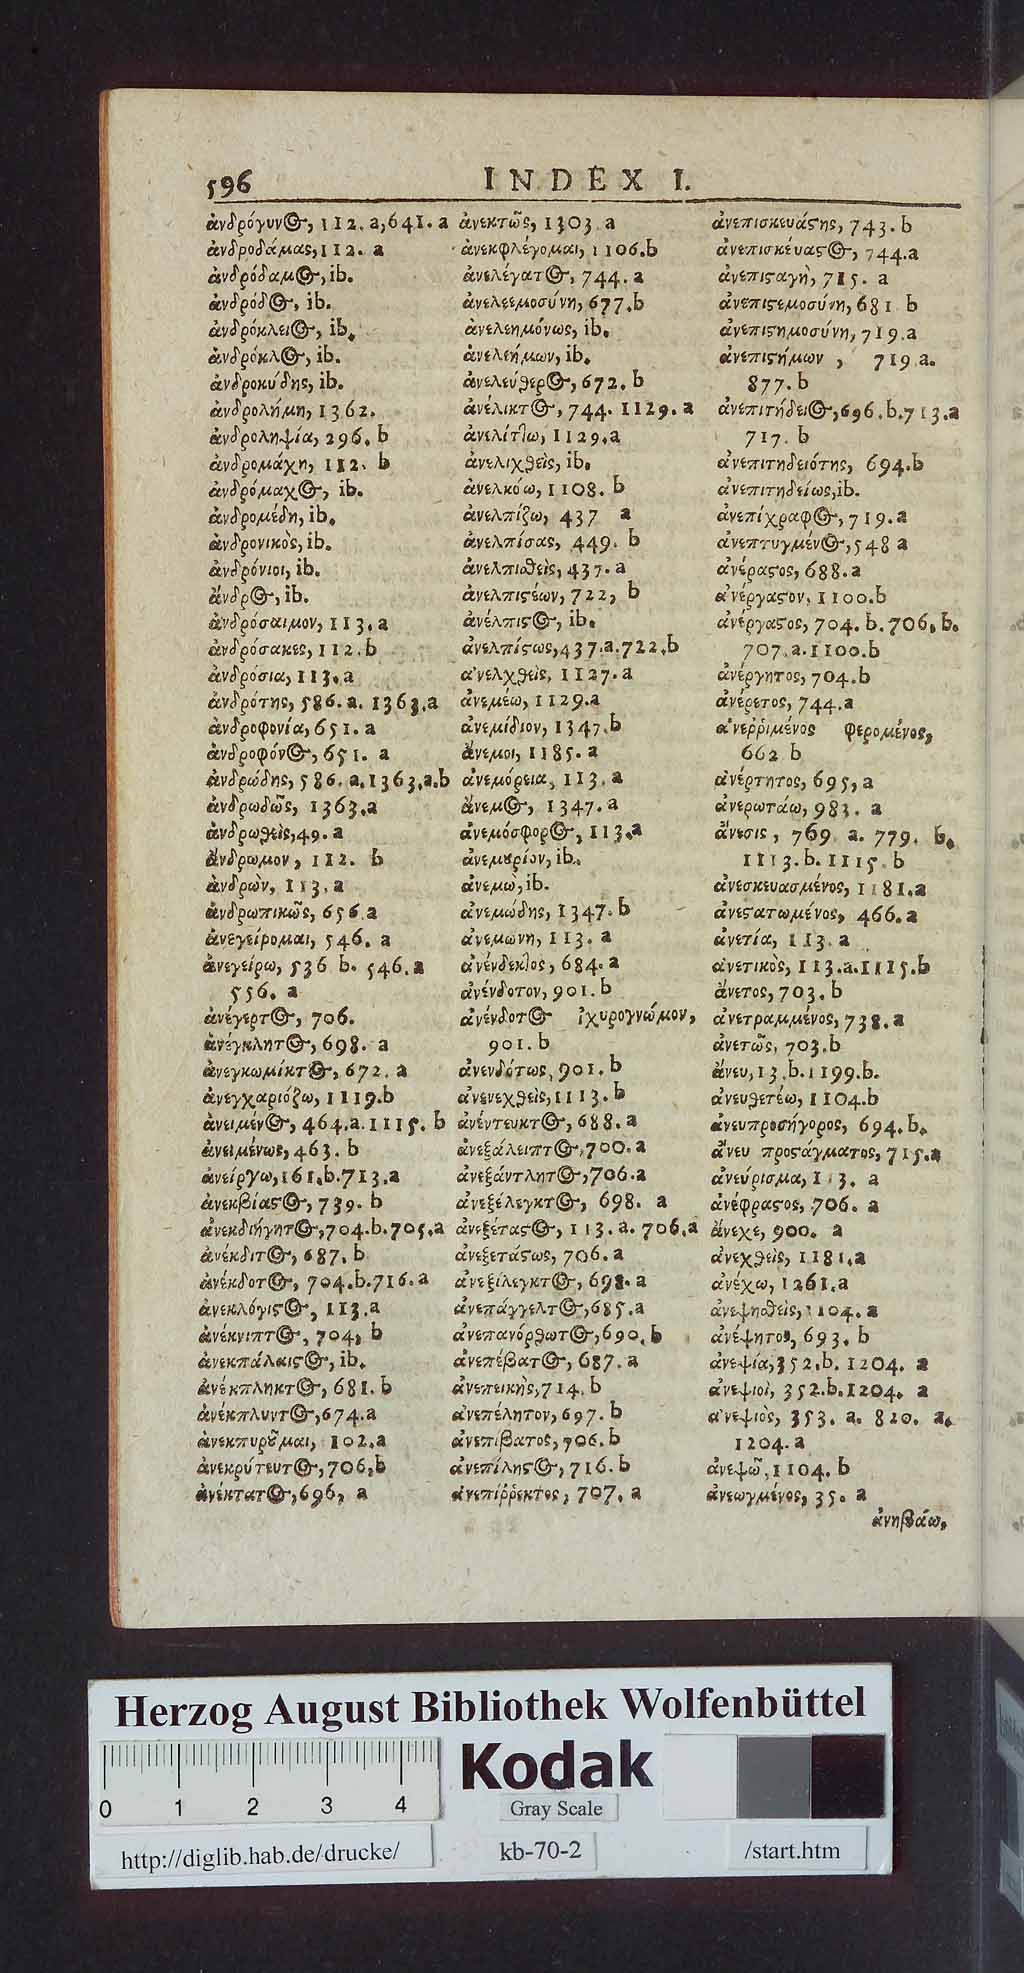 596 INDEX I.
ἀνδρόγυνος, 112. a, 641. a
ἀνδροδάμας, 112. a
ἀνδρόδαμος, ib.
ἀνδρόδος, ib.
ἀνδρόκλειος, ib.
ἀνδρόκλος, ib.
ἀνδροκύδης, ib.
ἀνδρολήμη, 1362.
ἀνδροληψία, 296. b
ἀνδρομάχη, 112. b
ἀνδρόμαχος, ib.
ἀνδρομέδη, ib.
ἀνδρονικὸς, ib.
ἀνδρόνιοι, ib.
ἄνδρος, ib.
ἀνδρόσαιμον, 113. a
ἀνδρόσακες, 112. b
ἀνδρόσια, 113. a
ἀνδρότης, 586. a. 1363. a
ἀνδροφονία, 651. a
ἀνδροφόνος, 651. a
ἀνδρώδης, 586. a. 1363. a. b
ἀνδρωδῶς, 1363. a
ἀνδρωθεὶς, 49. a
ἄνδρωμον, 112. b
ἀνδρὼν, 113. a
ἀνδρωπικῶς, 656. a
ἀνεγείρομαι, 546. a
ἀνεγείρω, 536 b. 546. a
556. a
ἀνέγερτος, 706.
ἀνέγκλητος, 698. a
ἀνεγκωμίκτος, 672. a
ἀνεγχαριόζω, 1119. b
ἀνειμένος, 464. a. 1115. b
ἀνειμένως, 463. b
ἀνείργω, 161. b. 713. a
ἀνεκβίαστος, 739. b
ἀνεκδιήγητος, 704. b. 705. a
ἀνέκδιτος, 687. b
ἀνέκδοτος, 704. b. 716. a
ἀνεκλόγιστος, 113. a
ἀνέκνιπτος, 704, b
ἀνεκπάλαιστος, ib.
ἀνέκπληκτος, 681. b
ἀνέκπλυντος, 674. a
ἀνεκπυροῦμαι, 102. a
ἀνεκρύτευτος, 706, b
ἀνέκτατος, 696, a
ἀνεκτῶς, 1303. a
ἀνεκφλέγομαι, 1106. b
ἀνελέγατος, 744. a
ἀνελεεμοσύνη, 677. b
ἀνελεημόνως, ib.
ἀνελεήμων, ib.
ἀνελεύθερος, 672. b
ἀνέλικτος, 744. 1129. a
ἀνελίττω, 1129. a
ἀνελιχθεὶς, ib.
ἀνελκόω, 1108. b
ἀνελπίζω, 437 a
ἀνελπίσας, 449. b
ἀνελπισθεὶς, 437. a
ἀνελπιστέων, 722, b
ἀνέλπιστος, ib.
ἀνελπίστως, 437. a. 722. b
ἀνελχθεὶς, 1127. a
ἀνεμέω, 1129. a
ἀνεμίδιον, 1347. b
ἄνεμοι, 1185. a
ἀνεμόρεια, 113. a
ἄνεμος, 1347. a
ἀνεμόσφορος, 113. a
ἀνεμουρίον, ib.
ἀνεμὼ, ib.
ἀνεμώδης, 1347. b
ἀνεμώνη, 113. a
ἀνένδεκτος, 684. a
ἀνένδοτον, 901. b
ἀνένδοτος ἰχυρογνώμον,
901. b
ἀνενδότως, 901. b
ἀνενεχθεὶς, 1113. b
ἀνέντευκτος, 688. a
ἀνεξάλειπτος, 700. a
ἀνεξάντλητος, 706. a
ἀνεξέλεγκτος, 698. a
ἀνεξέταστος, 113. a. 706. a
ἀνεξετάστως, 706. a
ἀνεξίλεγκτος, 698. a
ἀνεπάγγελτος, 685. a
ἀνεπανόρθωτος, 690. b
ἀνεπέβατος, 687. a
ἀνεπεικὴς, 714. b
ἀνεπέλητον, 697. b
ἀνεπίβατος, 706. b
ἀνεπίληστος, 716. b
ἀνεπίῤῥεκτος, 707. a
ἀνεπισκευάστης, 743. b
ἀνεπισκέυαστος, 744. a
ἀνεπισταγὴ, 715. a
ἀνεπιστεμοσύνη, 681 b
ἀνεπιστημοσύνη, 719. a
ἀνεπιστήμων, 719 a.
877. b
ἀνεπιτήδειος, 696. b. 713. a
717. b
ἀνεπιτηδειότης, 694. b
ἀνεπιτηδείως, ib.
ἀνεπίχραφος, 719. a
ἀνεπτυγμένος, 548 a
ἀνέραστος, 688. a
ἀνέργαστον, 1100. b
ἀνέργαστος, 704. b. 706. b.
707. a. 1100. b
ἀνέργητος, 704. b
ἀνέρετος, 744. a
ἀνεῤῥιμένος φερομένος,
662 b
ἀνέρτητος, 695, a
ἀνερωτάω, 983. a
ἄνεσις, 769. a. 779. b.
1113. b. 1115. b
ἀνεσκευασμένος, 1181. a
ἀνεστατωμένος, 466. a
ἀνετία, 113. a
ἀνετικὸς, 113. a. 1115. b
ἄνετος, 703. b
ἀνετραμμένος, 738. a
ἀνετῶς, 703. b
ἄνευ, 13. b. 1199. b.
ἀνευθετέω, 1104. b
ἀνευπροσήγορος, 694. b.
ἄνευ προστάγματος, 715. a
ἀνεύρισμα, 113. a
ἀνέφραστος, 706. a
ἄνεχε, 900. a
ἀνεχθεὶς, 1181. a
ἀνέχω, 1261. a
ἀνεψηθεὶς, 1104. a
ἀνέψητος, 693. b
ἀνεψία, 352. b. 1204. a
ἀνεψιοὶ, 352. b. 1204. a
ἀνεψιὸς, 353. a. 820. a.
1204. a
ἀνεψῶ, 1104. b
ἀνεωγμένος, 35. a
ἀνηβάω,
Herzog August Bibliothek Wolfenbüttel
0 1 2 3 4
Kodak
Gray Scale
http://diglib.hab.de/drucke/ kb-70-2 /start.htm